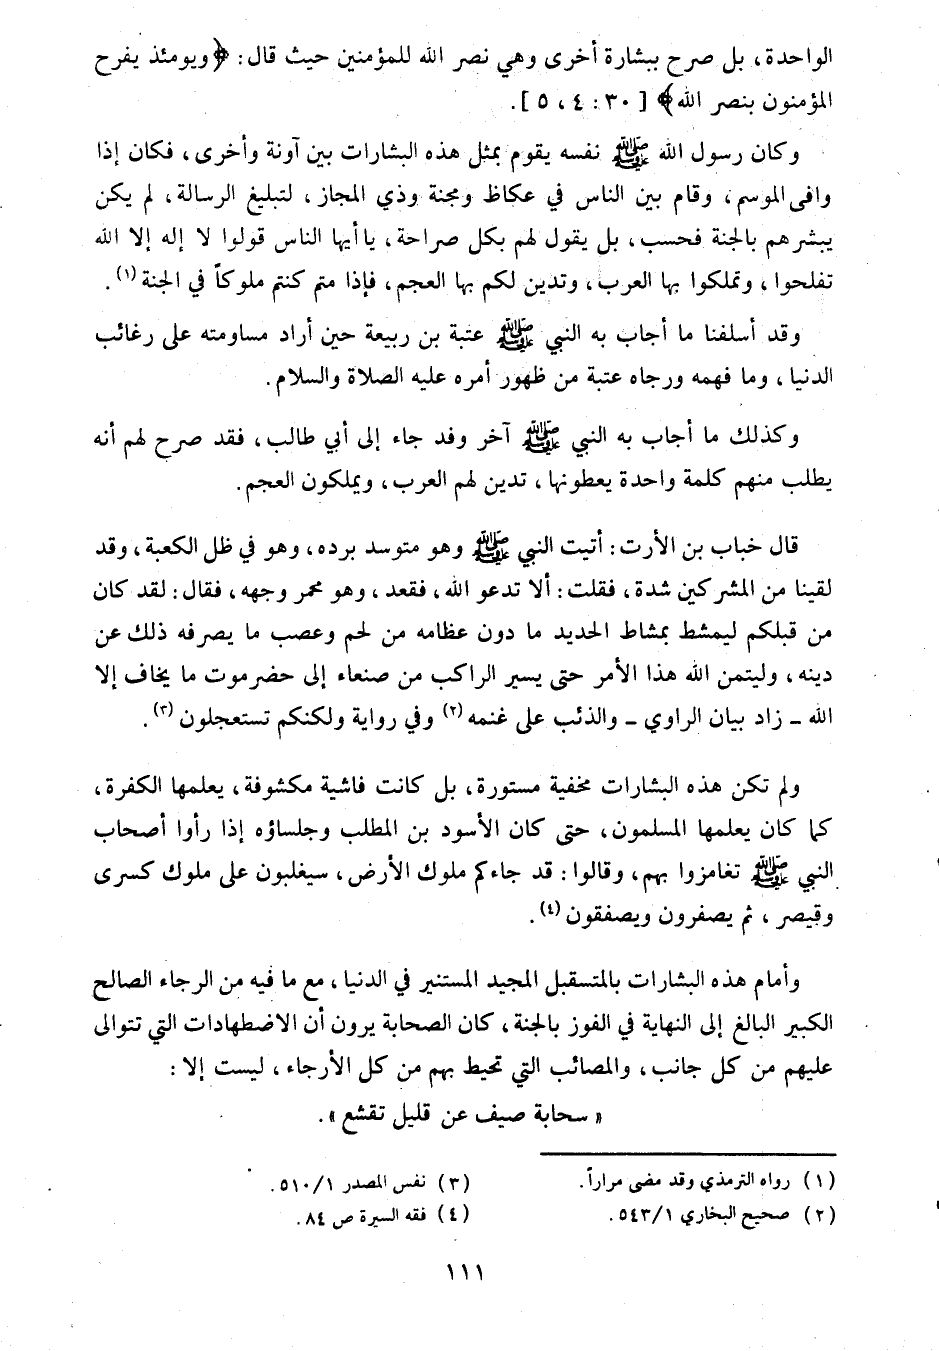 الواحدة، بل صرح ببشارة أخرى وهي نصر الله للمؤمنين حيث قال: ﴿ويومئذ يفرح
المؤمنون بنصر الله﴾ [٣٠: ٤، ٥].
وكان رسول الله ﷺ نفسه يقوم بمثل هذه البشارات بين آونة وأخرى، فكان إذا
وافى الموسم، وقام بين الناس في عكاظ ومجنة وذي المجاز، لتبليغ الرسالة، لم يكن
يبشرهم بالجنة فحسب، بل يقول لهم بكل صراحة، يا أيها الناس قولوا لا إله إلا الله
تفلحوا، وتملكوا بها العرب، وتدين لكم بها العجم، فإذا متم كنتم ملوكاً في الجنة (١).
وقد أسلفنا ما أجاب به النبي ﷺ عتبة بن ربيعة حين أراد مساومته على رغائب
الدنيا، وما فهمه ورجاه عتبة من ظهور أمره عليه الصلاة والسلام.
وكذلك ما أجاب به النبي ﷺ آخر وفد جاء إلى أبي طالب، فقد صرح لهم أنه
يطلب منهم كلمة واحدة يعطونها، تدين لهم العرب، ويملكون العجم.
قال خباب بن الأرت: أتيت النبي ﷺ وهو متوسد برده، وهو في ظل الكعبة، وقد
لقينا من المشركين شدة، فقلت: ألا تدعو الله، فقعد، وهو محمر وجهه، فقال: لقد كان
من قبلكم ليمشط بمشاط الحديد ما دون عظامه من لحم وعصب ما يصرفه ذلك عن
دينه، وليتمن الله هذا الأمر حتى يسير الراكب من صنعاء إلى حضرموت ما يخاف إلا
الله - زاد بيان الراوي - والذئب على غنمه (٢) وفي رواية ولكنكم تستعجلون (٣).
ولم تكن هذه البشارات مخفية مستورة، بل كانت فاشية مكشوفة، يعلمها الكفرة،
كما كان يعلمها المسلمون، حتى كان الأسود بن المطلب وجلساؤه إذا رأوا أصحاب
النبي ﷺ تغامزوا بهم، وقالوا: قد جاءكم ملوك الأرض، سيغلبون على ملوك كسرى
وقيصر، ثم يصفرون ويصفقون (٤).
وأمام هذه البشارات بالمتسقبل المجيد المستنير في الدنيا، مع ما فيه من الرجاء الصالح
الكبير البالغ إلى النهاية في الفوز بالجنة، كان الصحابة يرون أن الاضطهادات التي تتوالى
عليهم من كل جانب، والمصائب التي تحيط بهم من كل الأرجاء، ليست إلا:
«سحابة صيف عن قليل تقشع».
(١) رواه الترمذي وقد مضى مراراً.
(٢) صحيح البخاري ٥٤٣/١.
(٣) نفس المصدر ٥١٠/١.
(٤) فقه السيرة ص ٨٤.
١١١